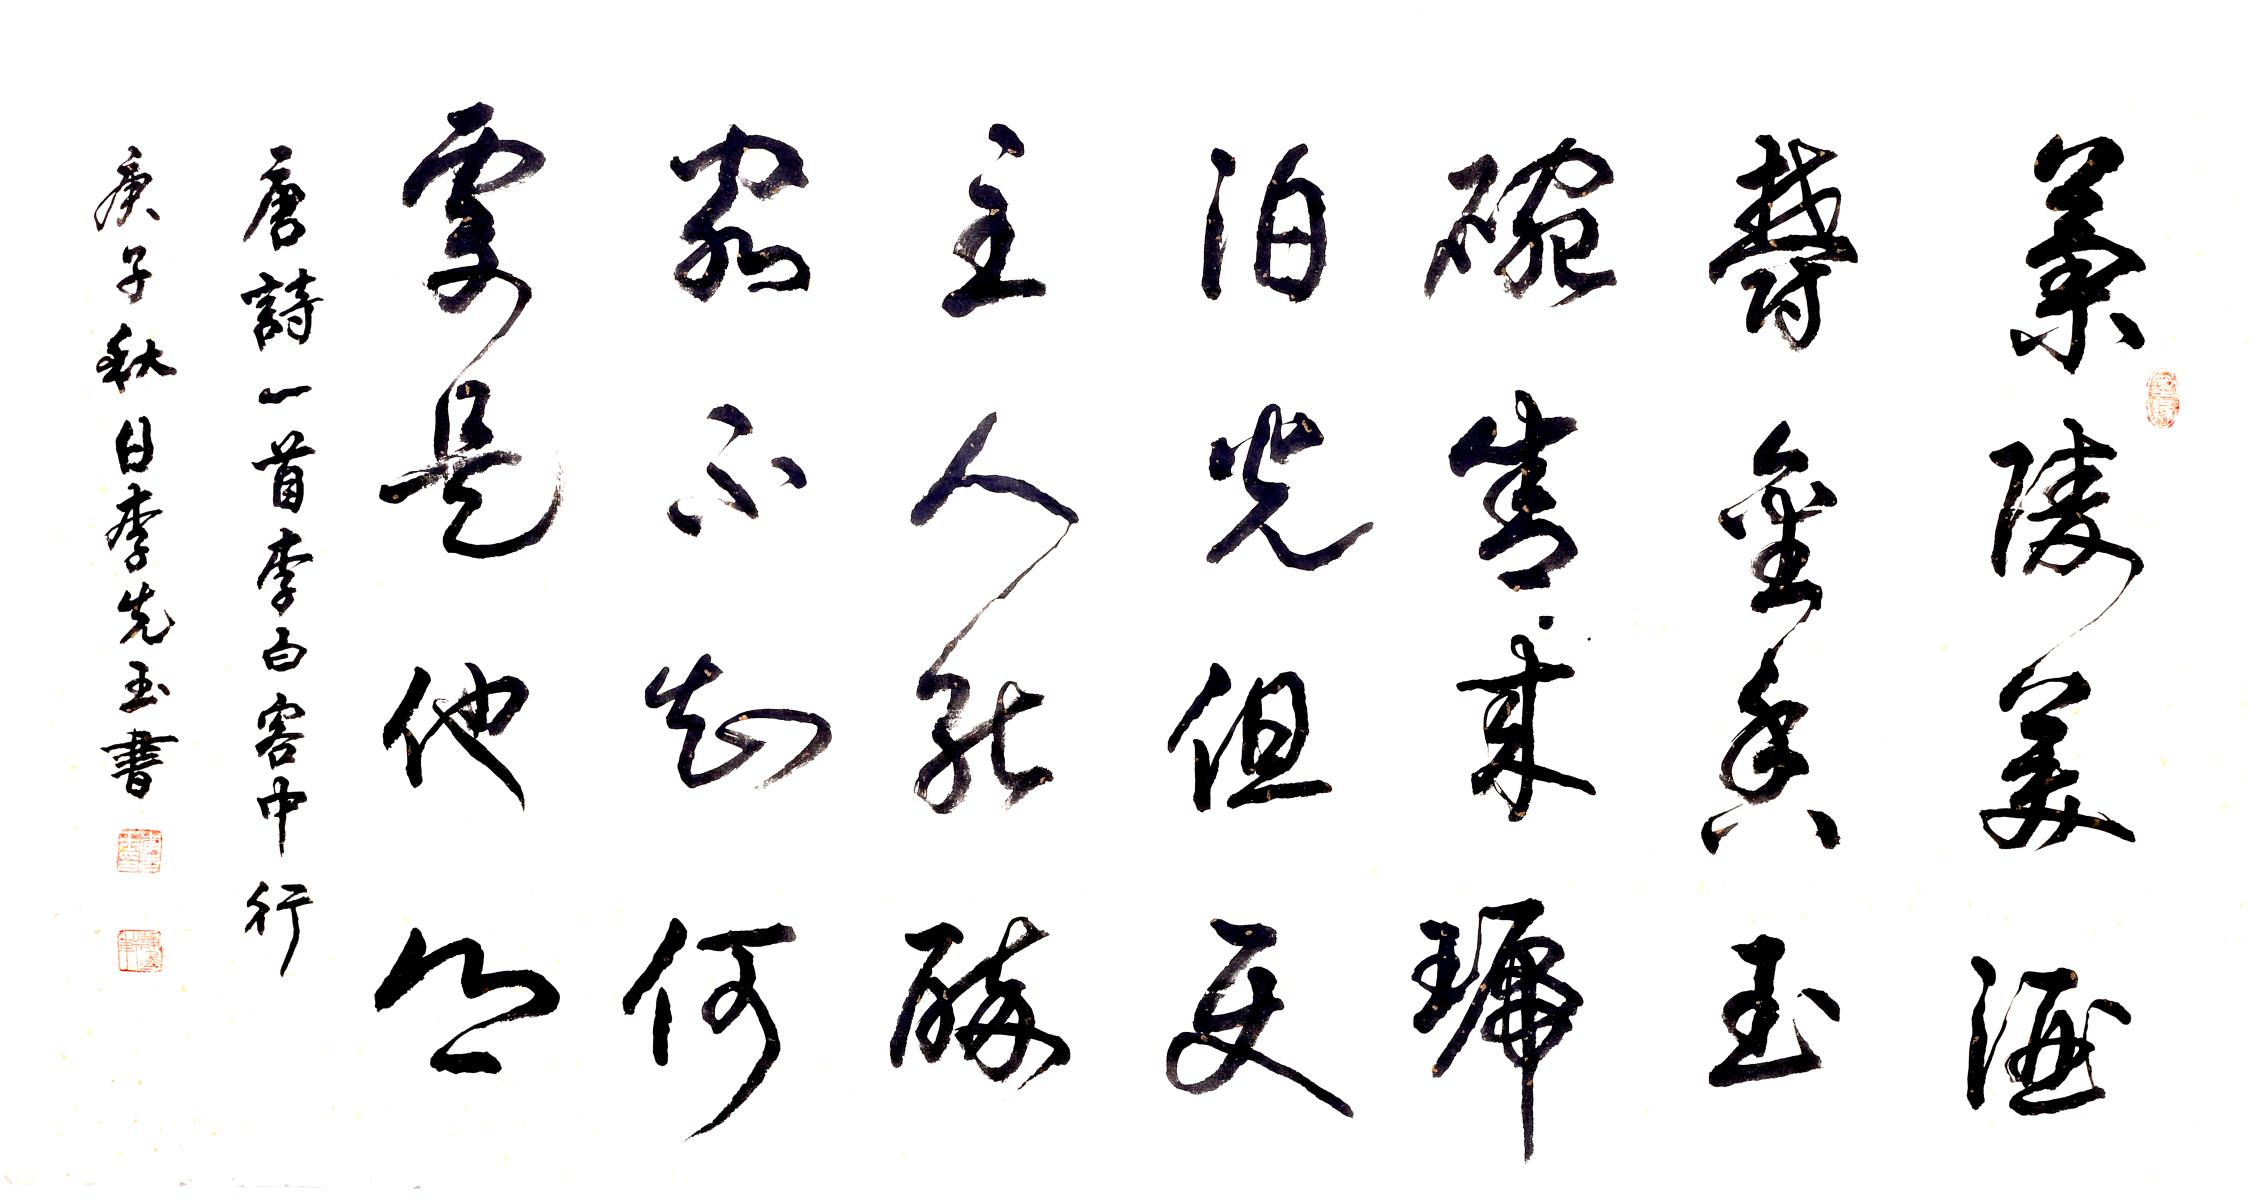 蘭陵美酒
鬱金香玉
碗盛来琥
泊光但使
主人能醉
客不知何
處是他鄉
唐詩一首李白客中行
庚子秋日李先玉書